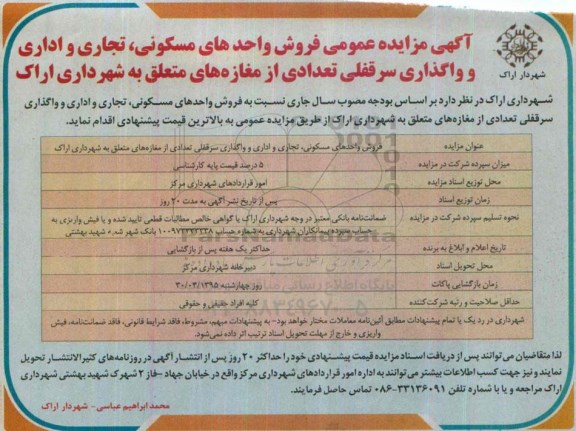 آگهی مزایده عمومی فروش واحد های مسکونی، تجاری و اداری
و واگذاری سرقفلی تعدادی از مغازه‌های متعلق به شهرداری اراک
شهرداری اراک
شهرداری اراک در نظر دارد بر اساس بودجه مصوب سال جاری نسبت به فروش واحدهای مسکونی، تجاری و اداری و واگذاری
سرقفلی تعدادی از مغازه‌های متعلق به شهرداری اراک از طریق مزایده عمومی به بالاترین قیمت پیشنهادی اقدام نماید.
عنوان مزایده فروش واحدهای مسکونی، تجاری و اداری و واگذاری سرقفلی تعدادی از مغازه‌های متعلق به شهرداری اراک
میزان سپرده شرکت در مزایده ۵ درصد قیمت پایه کارشناسی
محل توزیع اسناد مزایده امور قراردادهای شهرداری مرکز
زمان توزیع اسناد پس از تاریخ نشر آگهی به مدت ۲۰ روز
نحوه تسلیم سپرده شرکت در مزایده ضمانتنامه بانکی معتبر در وجه شهرداری اراک یا گواهی خالص مطالبات قطعی تایید شده و یا فیش واریزی به
حساب سپرده پیمانکاران شهرداری به شماره حساب بانک شهر شعبه شهید بهشتی
تاریخ اعلام و ابلاغ به برنده حداکثر یک هفته پس از بازگشایی
محل تحویل اسناد دبیرخانه شهرداری مرکز
زمان بازگشایی پاکات روز چهارشنبه ۳۰/۰۴/۱۳۹۵
حداقل صلاحیت و رتبه شرکت‌کننده کلیه افراد حقیقی و حقوقی
شهرداری در رد یک یا تمام پیشنهادات مطابق آئین‌نامه معاملات مختار خواهد بود- به پیشنهادات مبهم، مشروط، فاقد شرایط قانونی، فاقد ضمانت‌نامه، فیش
واریزی و خارج از مهلت تحویل اسناد ترتیب اثر داده نمی‌شود.
لذا متقاضیان می‌توانند پس از دریافت اسناد مزایده قیمت پیشنهادی خود را حداکثر ۲۰ روز پس از انتشار آگهی در روزنامه‌های کثیرالانتشار تحویل
نمایند و نیز جهت کسب اطلاعات بیشتر می‌توانند به اداره امور قراردادهای شهرداری مرکز واقع در خیابان جهاد -فاز ۲ شهرک شهید بهشتی شهرداری
اراک مراجعه و یا با شماره تلفن ۳۳۱۳۶۰۹۱-۰۸۶ تماس حاصل فرمایند.
محمدابراهیم عباسی- شهردار اراک
ParsNamadData